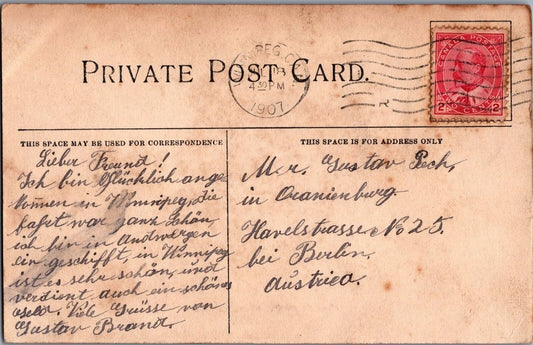 PRIVATE POST CARD.
WINNIPEG, CANADA
4 30 PM
1907
R
CANADA POSTAGE
2 CENTS 2
THIS SPACE MAY BE USED FOR CORRESPONDENCE
Lieber Freund!
Ich bin Glücklich ange
kommen in Winnipeg, die
fahrt war ganz Schön,
ich bin in Andwergen
ein geschifft, in Winnipeg
ist es sehr schön, und
verdient auch ein schönes
Geld. Viele Grüsse von
Gustav Brand.
THIS SPACE IS FOR ADDRESS ONLY
Mr. Gustav Pech,
in Oranienburg
Havelstrasse No 25,
bei Berlin,
Austrica.